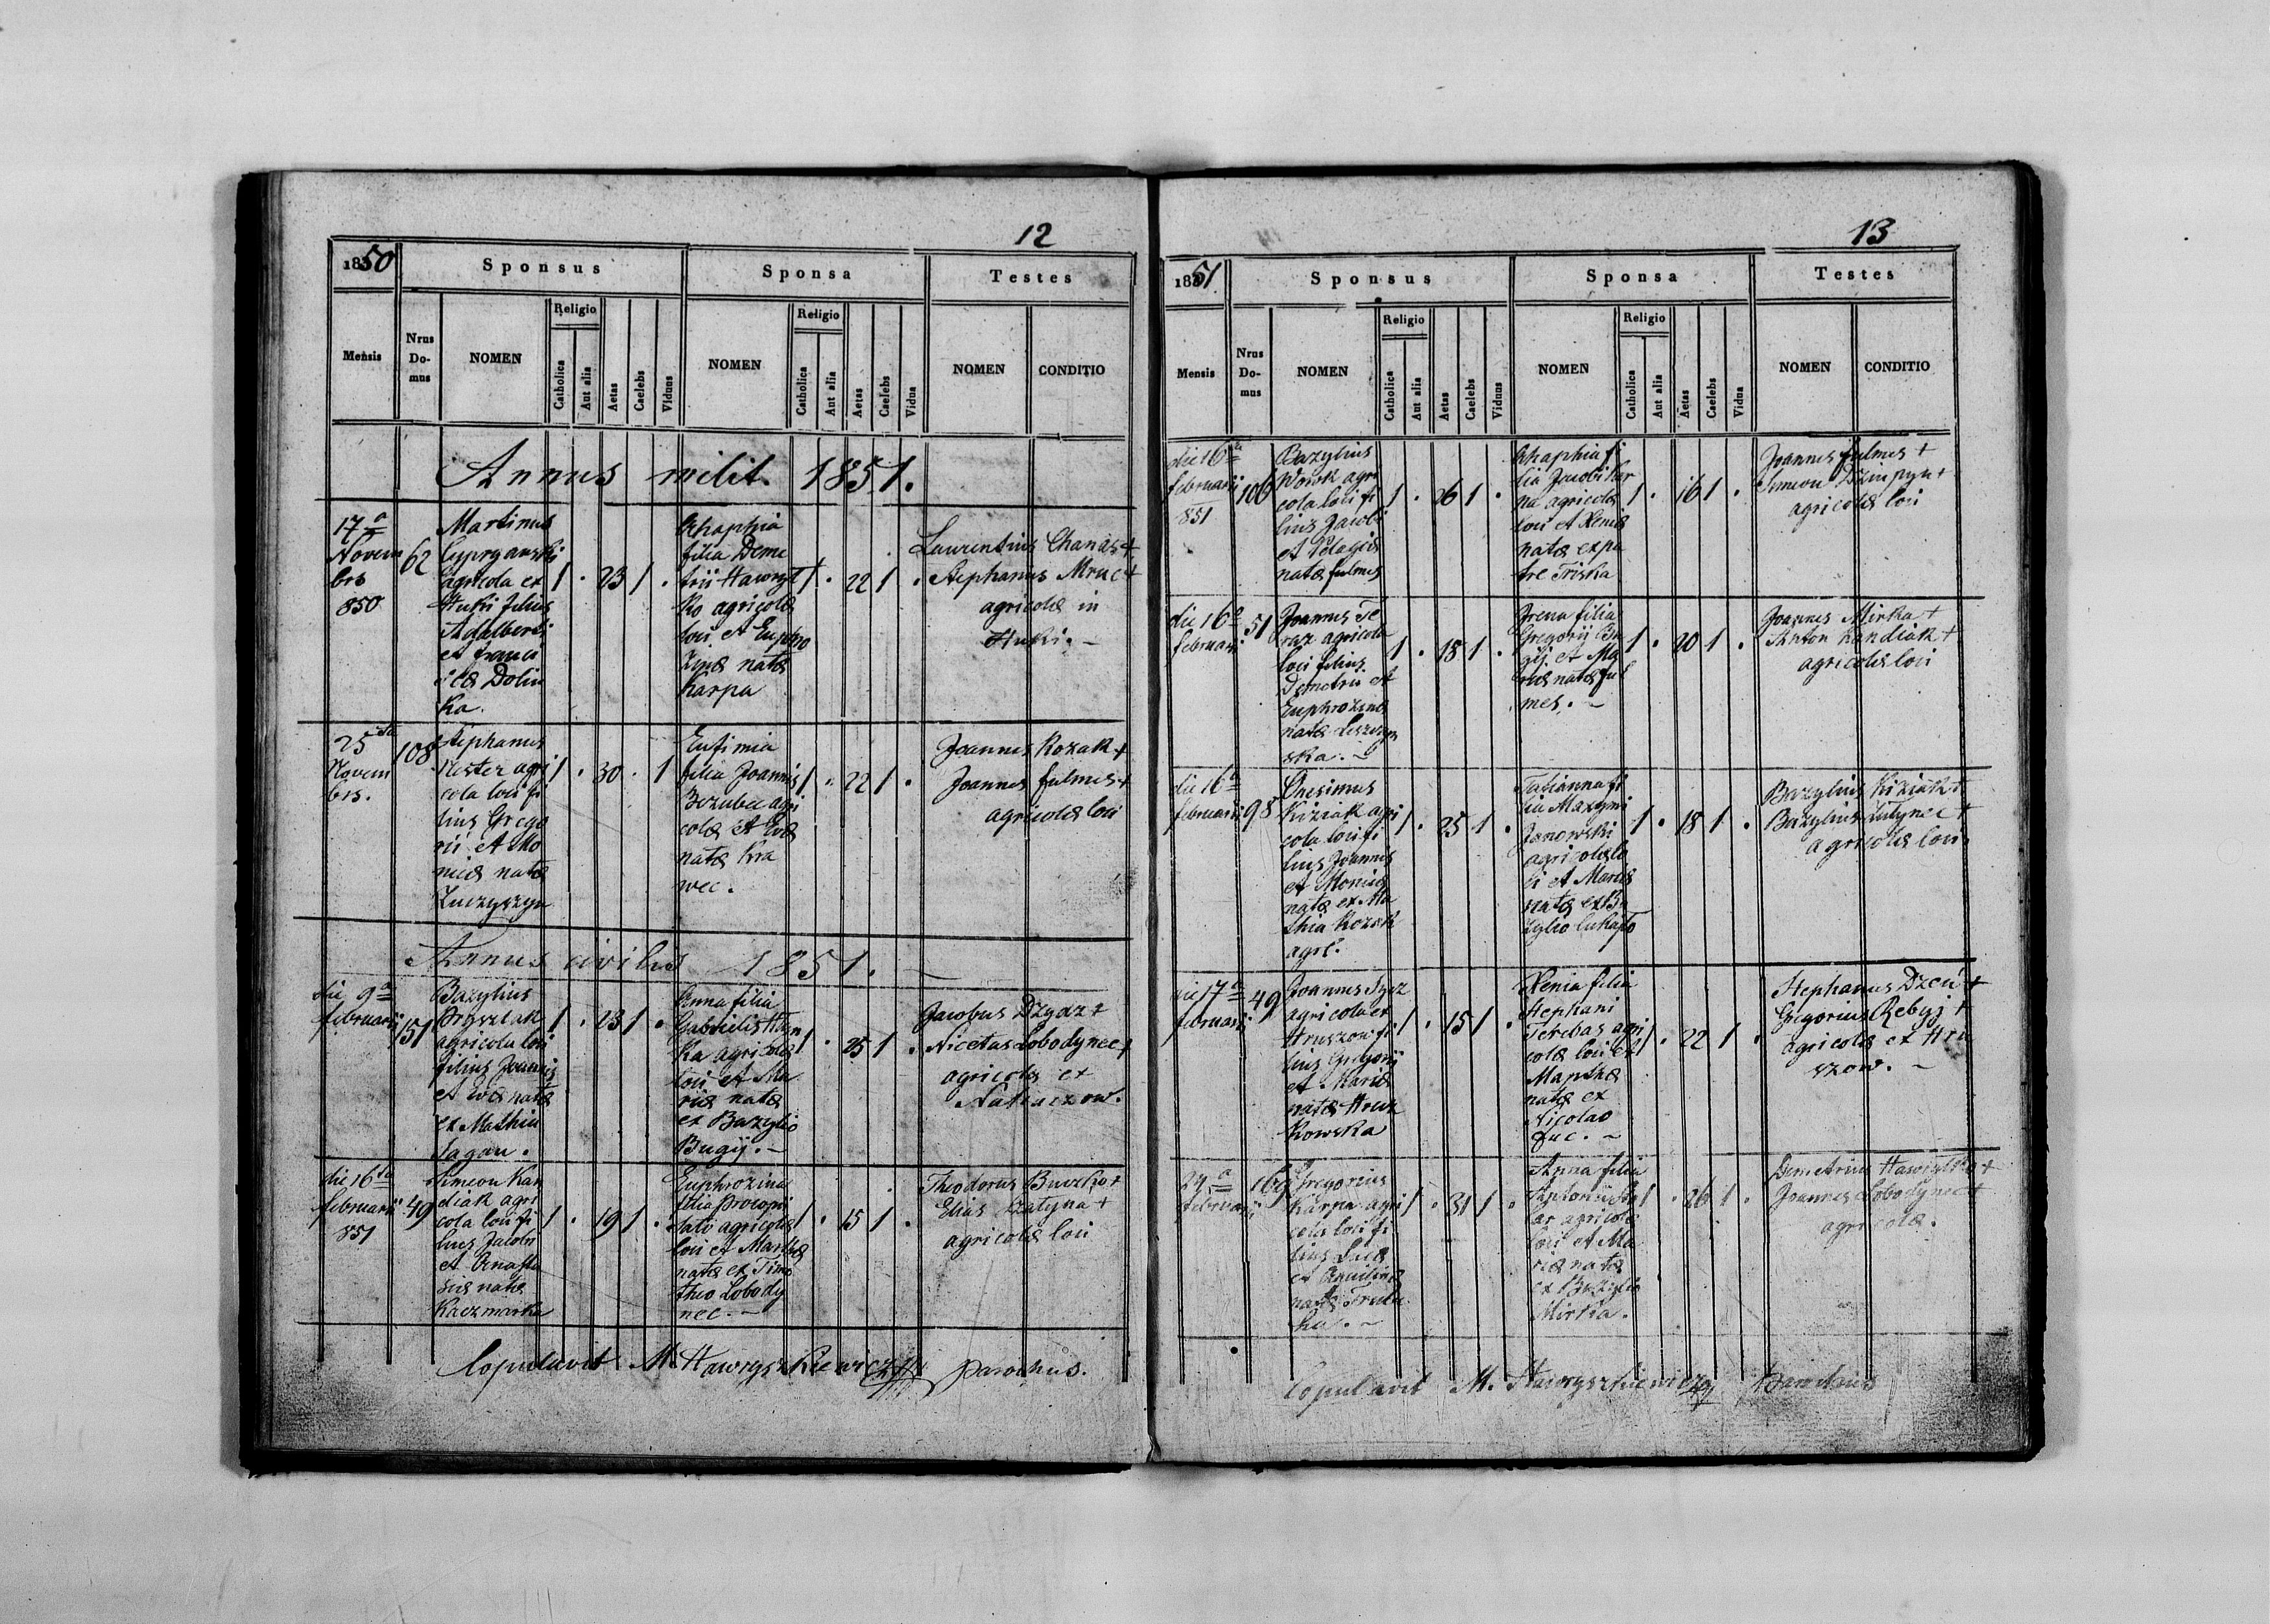 12
1850
Sponsus
Sponsa
Testes
Mensis
Nrus Domus
NOMEN
Religio
Catholica
Aut alia
Aetas
Caelebs
Viduus
NOMEN
Religio
Catholica
Aut alia
Aetas
Caelebs
Vidua
NOMEN
CONDITIO
Annus milit. 1851.
17a
Novem
bris
850
62
Martinus
agricola ex
Huki filius
Adalberti
et Franci
scæ Dolin
ka.
1 . 23 1 .
Ahaphia
filia Deme
trii Hawryl
ko agricolæ
loci et Euphro
zinæ natæ
Karpa
1 . 22 1 .
Laurentius Chanas +
Stephanus Mruc +
agricolæ in
Huki. –
25ta
Novem
bris.
108
Stephanus
Nester agri
cola loci fi
lius Grego
rii et Mo
nicæ natæ
Luczyszyn
1 . 30 . 1
Eufimia
filia Joannis
Bezubec agri
colæ et Evæ
natæ Kra
wec.
1 . 22 1 .
Joannes Kozak +
Joannes fulmes +
agricolæ loci
Annus civilis 1851.
die 9a
februarii
151
Bazylius
Pryszlak
agricola loci
filius Joannis
et Evæ natæ
ex Mathia
Sagan.
1 . 23 1 .
Anna filia
Gabrielis Hryn
ka agricolæ
loci et Ma
riæ natæ
ex Bazylio
Bugij. –
1 . 25 1 .
Jacobus Dzydz +
Nicetas Lobodynec +
agricolæ ex
die 16ta
februarii
851
49
Simeon Kan
diak agri
cola loci fi
lius Jacobi
et Anasta
siæ natæ
Kaczmarka
1 . 19 1 .
Euphrozina
filia Procopii
agricolæ
loci et Marthæ
natæ ex Timo
theo Lobody
nec. –
1 . 15 1 .
Theodorus Buczko +
Elias +
agricolæ loci
Copulavit M. Hawryszkiewicz parochus.
13
1851
Sponsus
Sponsa
Testes
Mensis
Nrus Domus
NOMEN
Religio
Catholica
Aut alia
Aetas
Caelebs
Viduus
NOMEN
Religio
Catholica
Aut alia
Aetas
Caelebs
Vidua
NOMEN
CONDITIO
die 16ta
februarii
851
106
Bazylius
Wowk agri
cola loci fi
lius Jacobi
et Pelagiæ
natæ fulmes
1 . 26 1 .
Ahaphia fi
lia Jacobi Kar
pa agricolæ
loci et Xeniæ
natæ ex pa
tre Triska
1 . 16 1 .
Joannes fulmes +
Simeon +
agricolæ loci
die 16a
februarii
51
Joannes Te
raz agricola
loci filius
Demetrii et
Euphrozinæ
natæ Leszczyn
ska. –
1 . 18 1 .
Irena filia
Gregorii Bu
gij. et Ma
riæ natæ ful
mes. –
1 . 20 1 .
Joannes Mirka +
Anton Kandiak +
agricolæ loci
die 16a
februarii
98
Onesimus
Kiziak agri
cola loci fi
lius Joannis
et Monicæ
natæ ex Ma
thia Kozak
agrl.
1 . 25 1 .
Tatianna fi
lia Maxymi
Janowski
agricolæ lo
ci et Mariæ
natæ ex Ba
zylio
1 . 18 1 .
Bazylius Kiziak +
Bazylius +
agricolæ loci.
die 17a
februarii
49
Joannes
agricola ex
Hruszow fi
lius Gregorii
et Mariæ
natæ Hrusz
kowska
1 . 15 1 .
Xenia filia
Stephani
Terebas agri
colæ loci et
natæ ex
Nicolao
fuc. –
1 . 22 1 .
Stephanus Dzeń +
Gregorius Rebyj +
agricolæ ex Hru
szow. –
24a
februarii
169
Gregorius
Karpa agri
cola loci fi
lius Lucæ
et Aquilinæ
natæ
1 . 31 1 .
Anna filia
Antonii
agricolæ
loci et Ma
riæ natæ
ex Bazylio
Mirka.
1 . 26 1 .
Demetrius Hawrylko +
Joannes Lobodynec +
agricolæ.
Copulavit M. Hawryszkiewicz Parochus